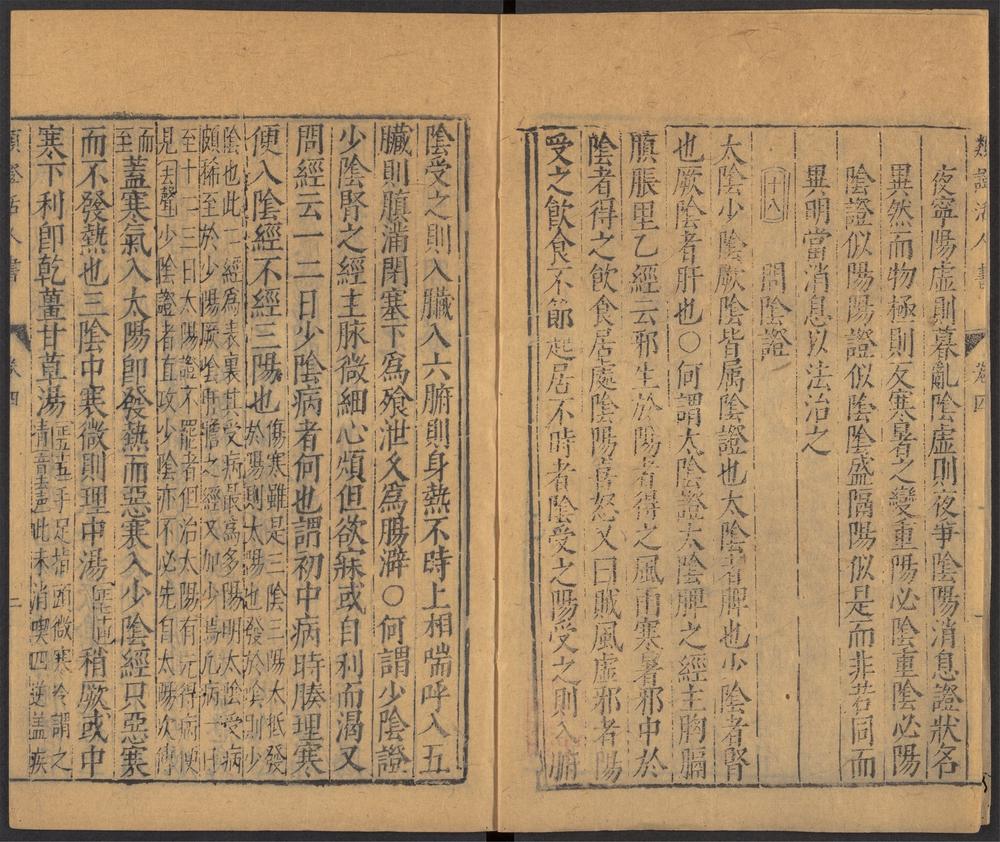 類證活人書 卷四
夜寧陽虛則暮亂陰虛則夜爭陰陽消息證狀各
異然而物極則反寒暑之變重陽必陰重陰必陽
陰證似陽陽證似陰陰盛隔陽似是而非若同而
異明當消息以法治之
十八 問陰證
太陰少陰厥陰皆属陰證也太陰者脾也少陰者腎
也厥陰者肝也○何謂太陰證太陰脾之經主胸膈
䐜脹里乙經云邪生於陽者得之風雨寒暑邪中於
陰者得之飲食居處陰陽喜怒又曰賊風虛邪者陽
受之飲食不節起居不時者陰受之陽受之則入腑
陰受之則入臟入六腑則身熱不時上相喘呼入五
臟則䐜滿閉塞下爲飱泄久爲腸澼○何謂少陰證
少陰腎之經主脉微細心煩但欲寐或自利而渴又
問經云一二日少陰病者何也謂初中病時腠理寒
便入陰經不經三陽也傷寒雖是三陰三陽大抵發
於陽則太陽也發於陰則少
陰也此二經爲表裏其受病最爲多陽明太陰受病
頗稀至於少陽厥陰肝膽之經又加少焉凡病一日
至十二三日太陽證不罷者但治太陽有元得病便
見去聲少陰證者直攻少陰亦不必先自太陽次傳
而
至蓋寒氣入太陽即發熱而惡寒入少陰經只惡寒
而不發熱也三陰中寒微則理中湯稍厥或中
寒下利即乾薑甘草湯手足指頭微寒冷謂之
清音去聲此未消喫四逆盖疾
類證活人書 卷四 二